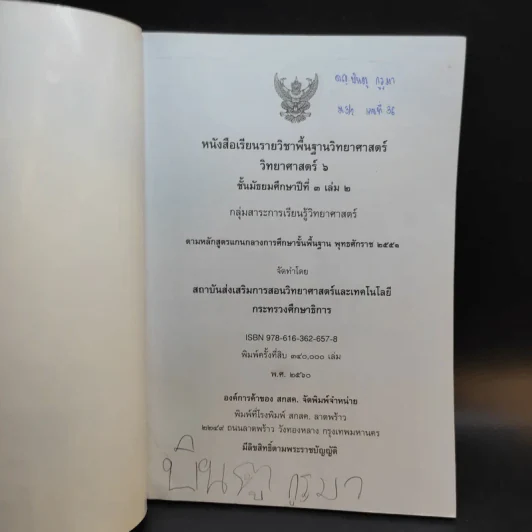 หนังสือเรียนรายวิชาพื้นฐานวิทยาศาสตร์
วิทยาศาสตร์ ๖
ชั้นมัธยมศึกษาปีที่ ๓ เล่ม ๒
กลุ่มสาระการเรียนรู้วิทยาศาสตร์
ตามหลักสูตรแกนกลางการศึกษาขั้นพื้นฐาน พุทธศักราช ๒๕๕๑
จัดทำโดย
สถาบันส่งเสริมการสอนวิทยาศาสตร์และเทคโนโลยี
กระทรวงศึกษาธิการ
ISBN 978-616-362-657-8
พิมพ์ครั้งที่สิบ ๓๔๐,๐๐๐ เล่ม
พ.ศ. ๒๕๖๐
องค์การค้าของ สกสค. จัดพิมพ์จำหน่าย
พิมพ์ที่โรงพิมพ์ สกสค. ลาดพร้าว
๒๒๔๙ ถนนลาดพร้าว วังทองหลาง กรุงเทพมหานคร
มีลิขสิทธิ์ตามพระราชบัญญัติ